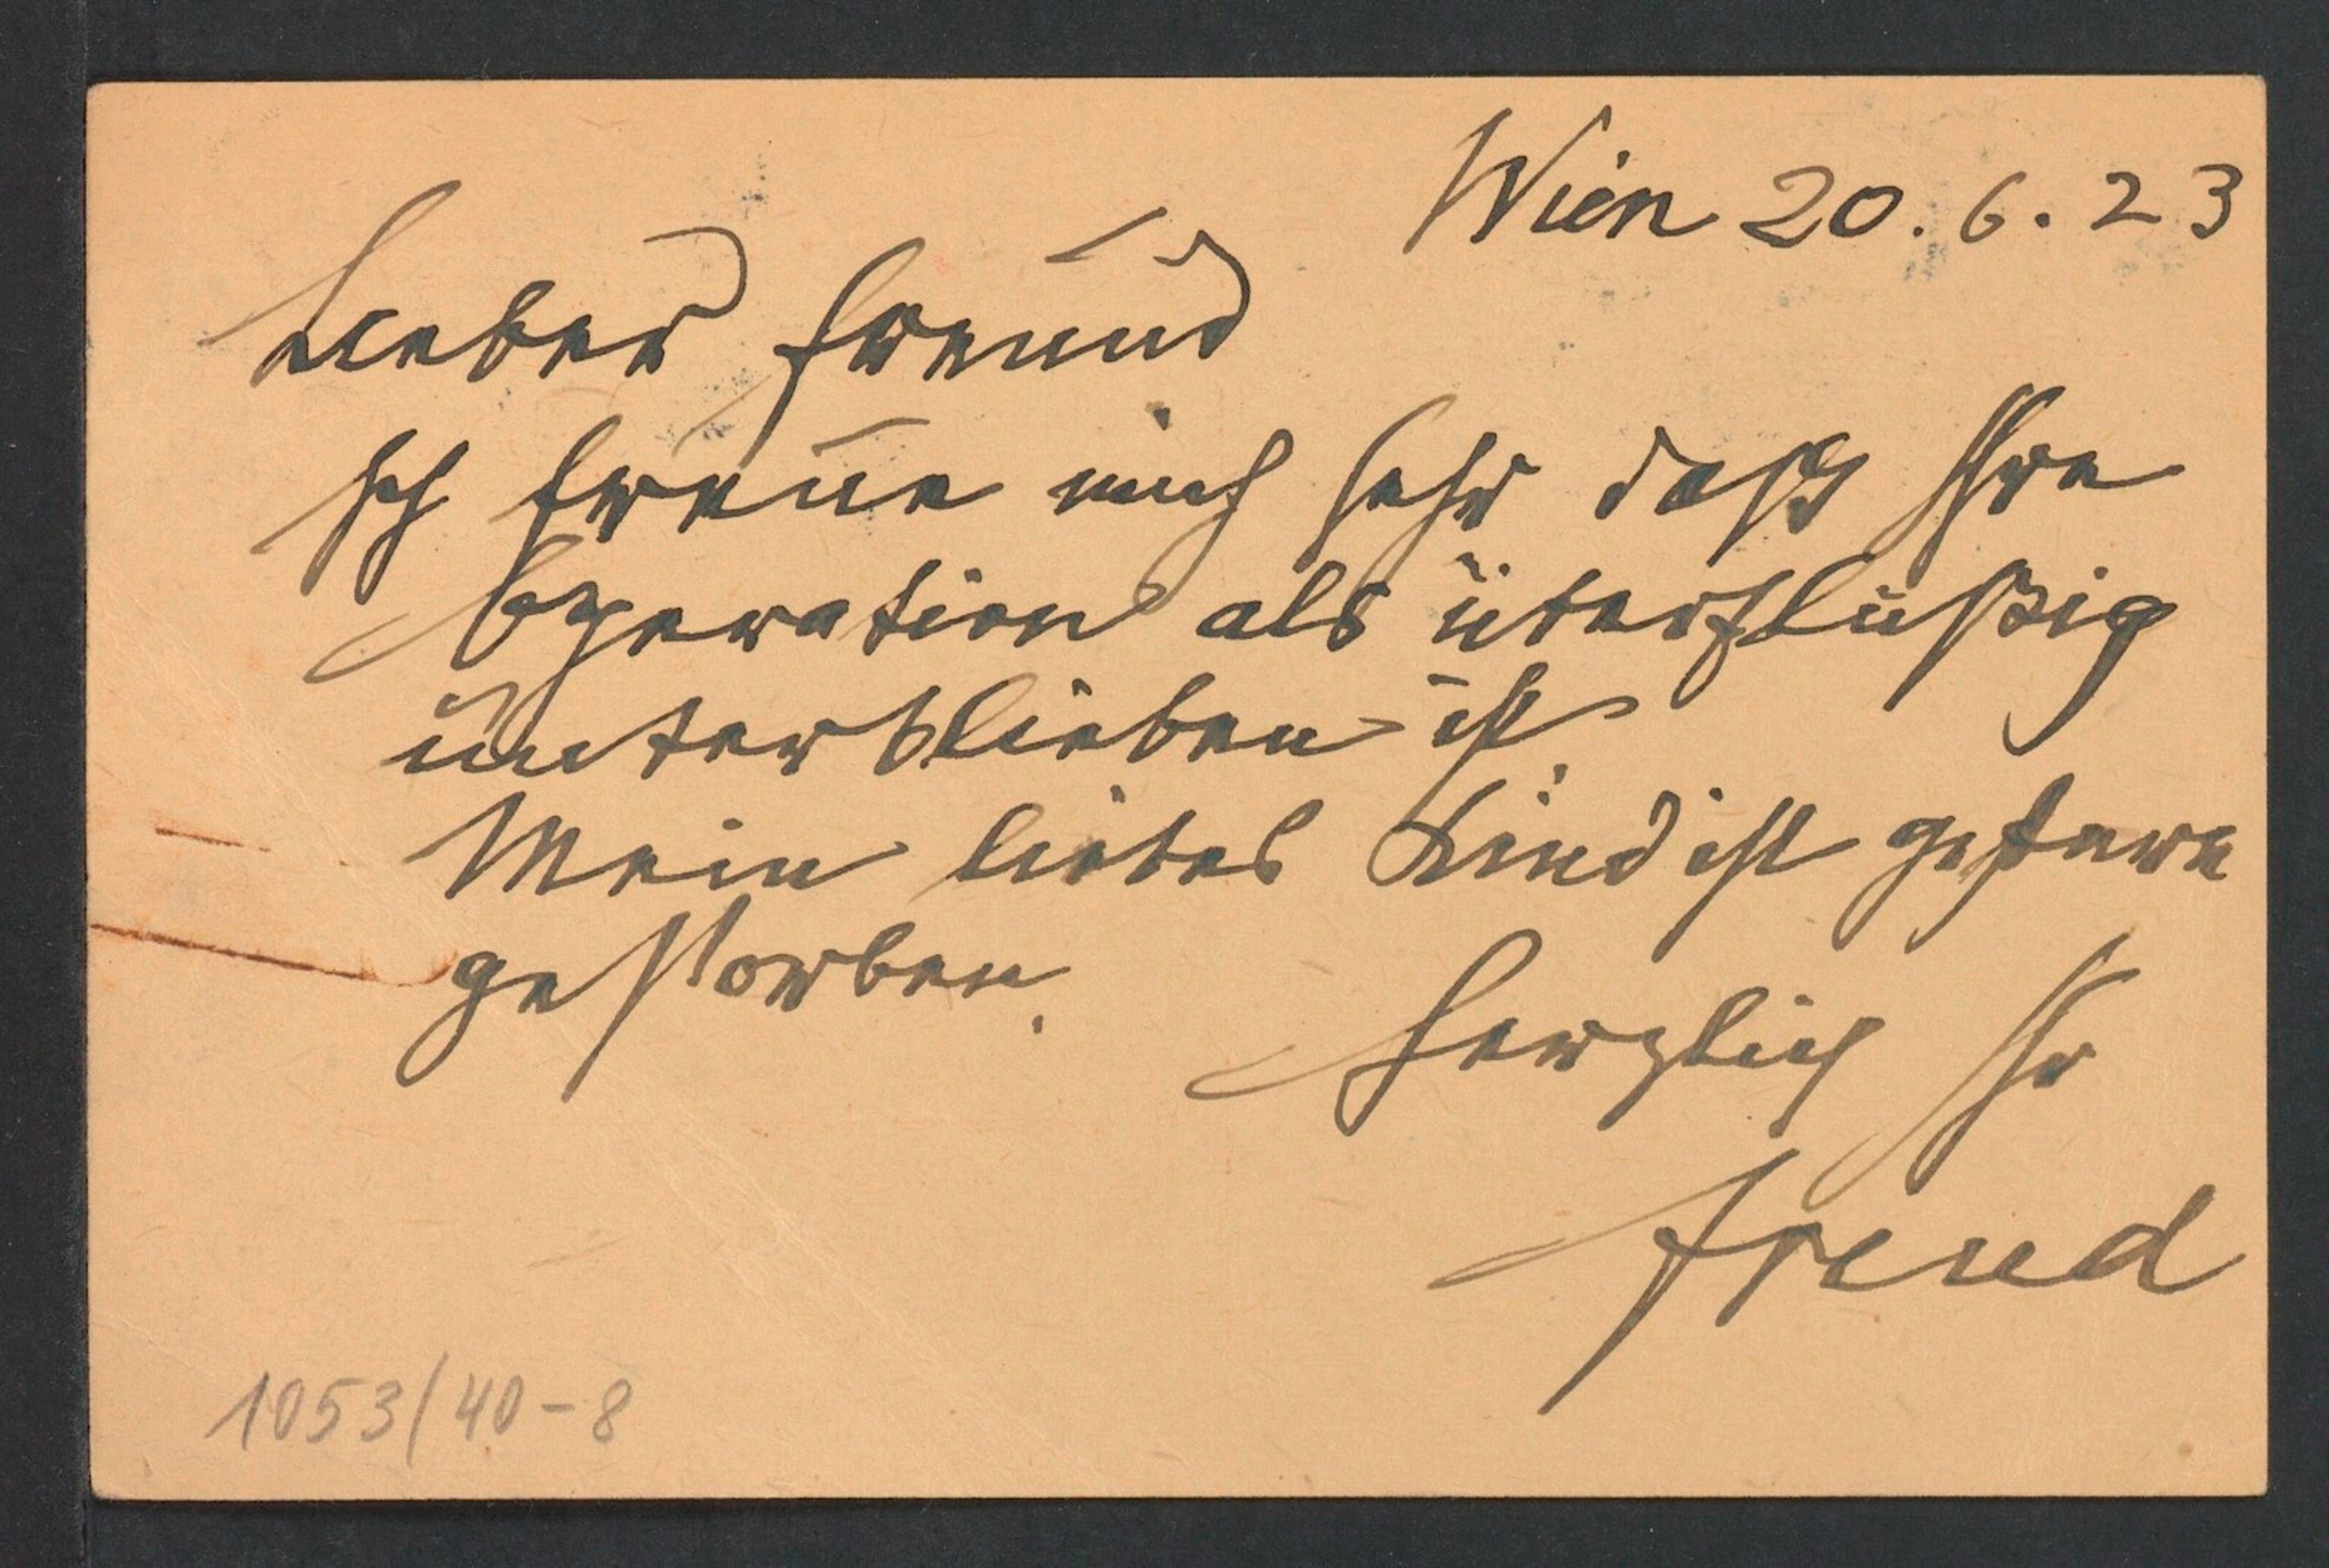 Wien 20.6.23
Lieber Freund
Ich freue mich sehr daß Ihre
Operation als überflüßig
unterblieben ist
Mein liebes Kind ist gestern
gestorben.
Herzlich Ihr
Freud
1053/40-8